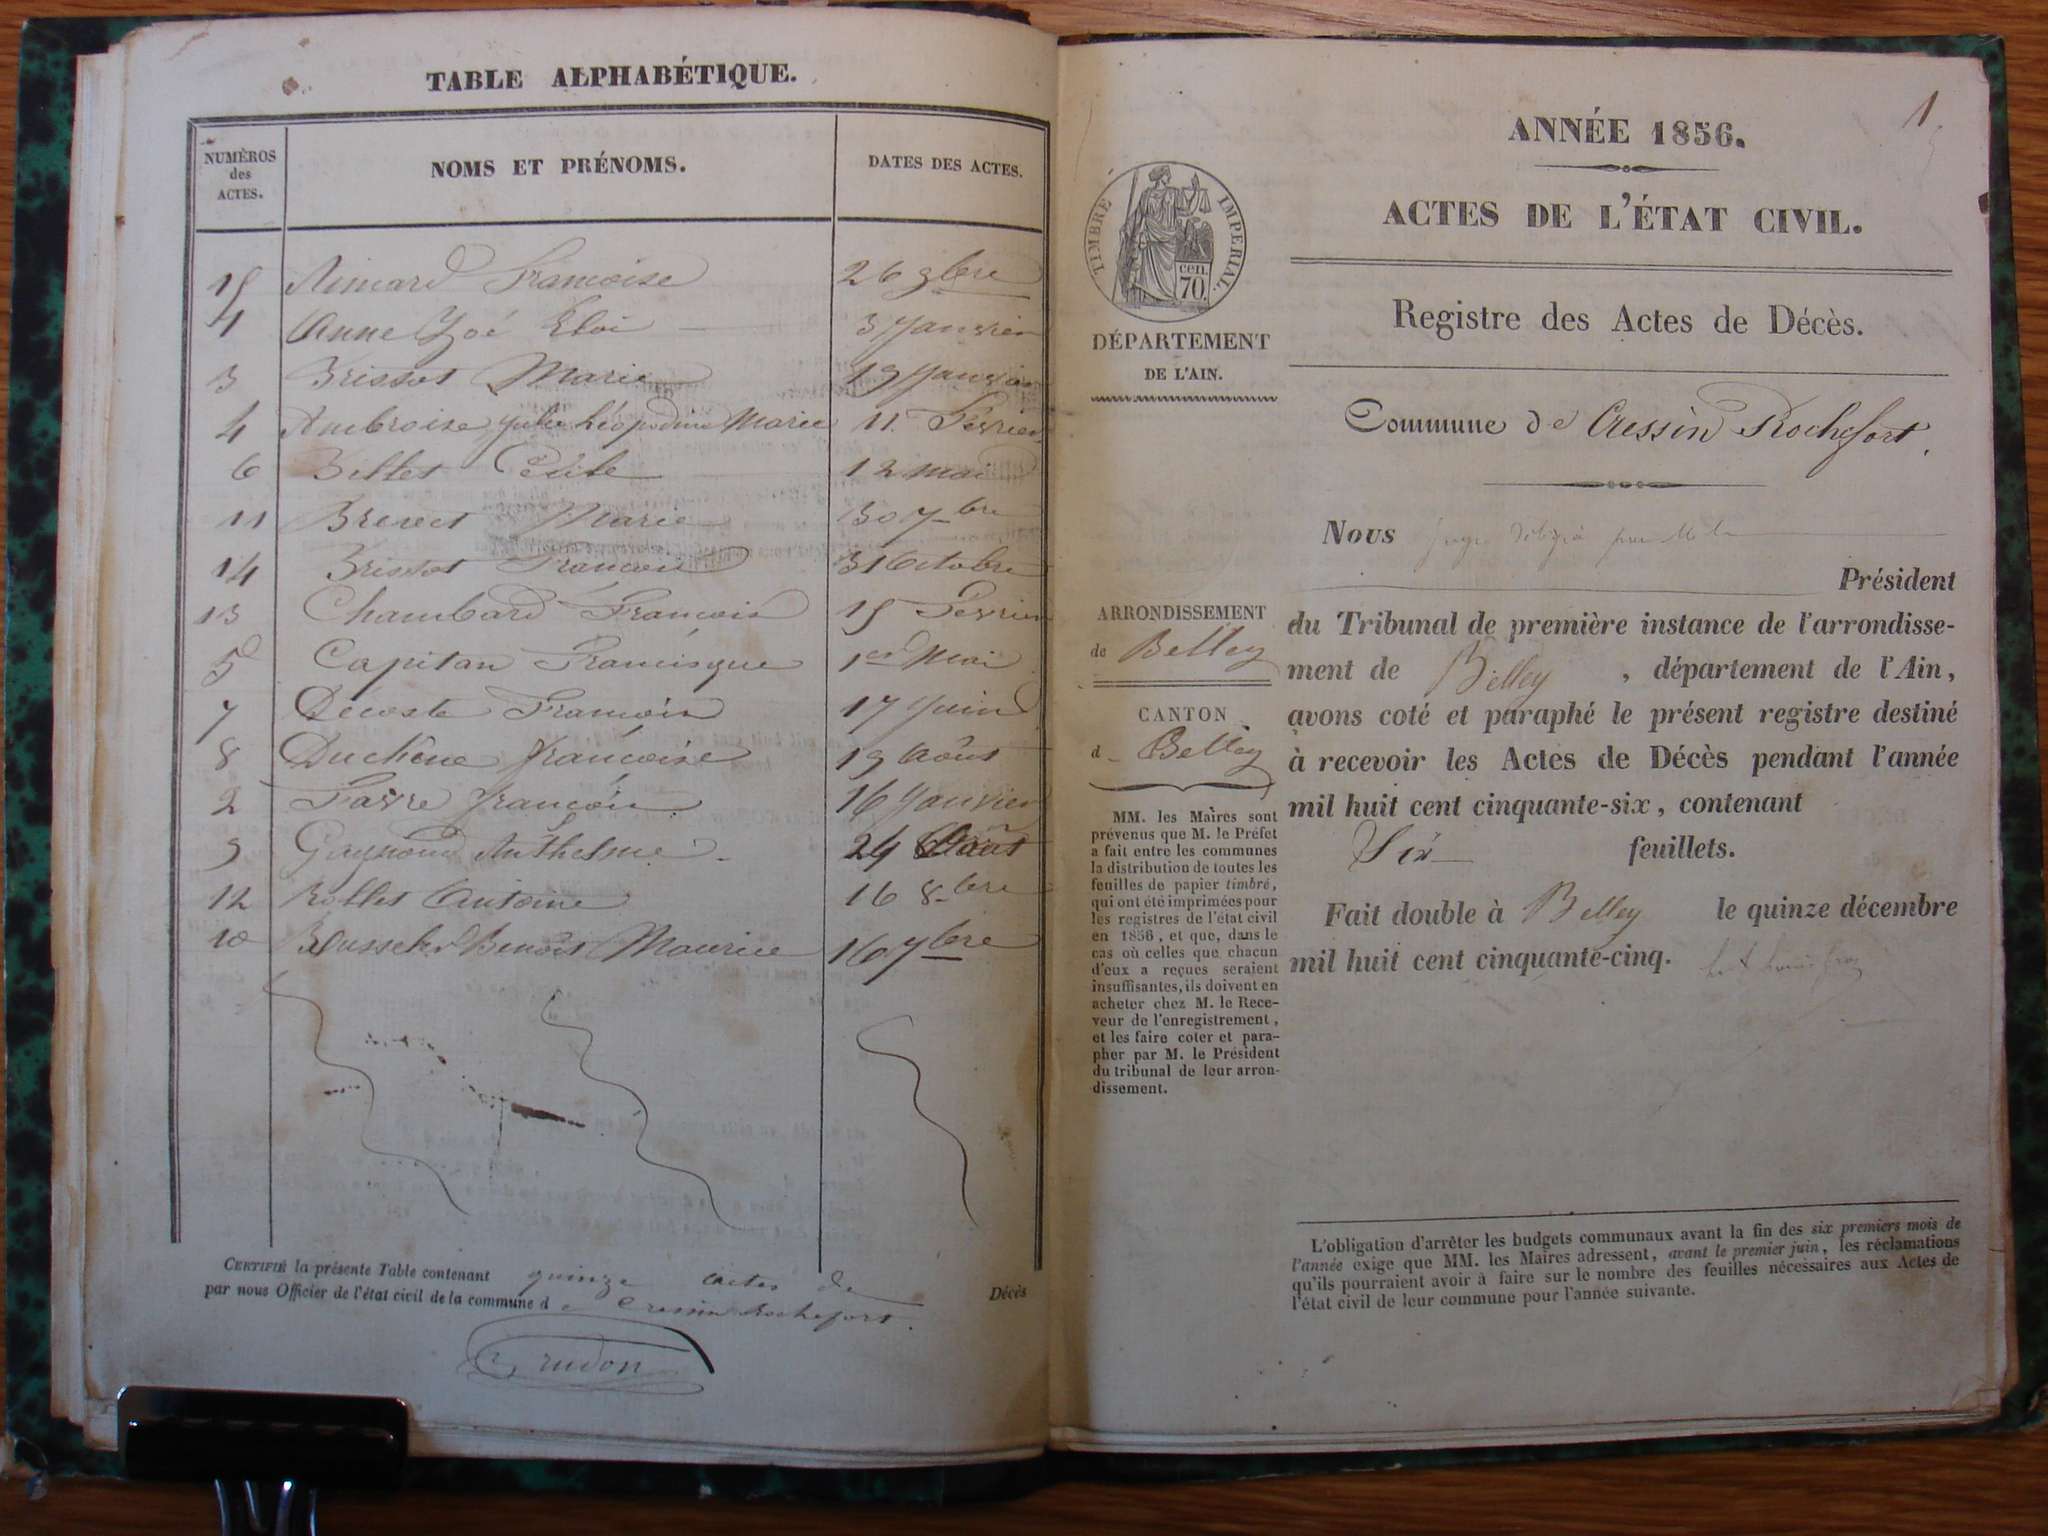 TABLE ALPHABÉTIQUE.
NUMÉROS
des
ACTES.
NOMS ET PRÉNOMS.
DATES DES ACTES.
15 Aimard Françoise 26 9bre
1 Anne Zoé Eloi 3 Janvier
3 Brissot Marie 19 Janvier
4 Ambroise Julie Léopoldine Marie 11 Février
6 Billet Cécile 12 mai
11 Brevet Marie 30 7bre
14 Brissot François 31 Octobre
13 Chambard François 15 Février
5 Capitan Francisque 1er Mai
7 Decoste François 17 Juin
8 Duchêne françoise 19 Août
2 Favre françois 16 Janvier
9 Anthelme 24 Août
12 Rollet Antoine 16 8bre
10 Benoit Maurice 16 7bre
CERTIFIÉ la présente Table contenant quinze actes de Décès
par nous Officier de l'état civil de la commune de Cressin Rochefort.
Grudon
1
ANNÉE 1856.
ACTES DE L'ÉTAT CIVIL.
TIMBRE IMPERIAL.
cen.
70.
DÉPARTEMENT
DE L'AIN.
Registre des Actes de Décès.
Commune de Cressin Rochefort.
Nous juge délégué par M. le
Président
du Tribunal de première instance de l'arrondisse-
ment de Belley, département de l'Ain,
avons coté et paraphé le présent registre destiné
à recevoir les Actes de Décès pendant l'année
mil huit cent cinquante-six, contenant
Six feuillets.
Fait double à Belley le quinze décembre
mil huit cent cinquante-cinq.
ARRONDISSEMENT
de Belley
CANTON
d Belley
MM. les Maires sont
prévenus que M. le Préfet
a fait entre les communes
la distribution de toutes les
feuilles de papier timbré,
qui ont été imprimées pour
les registres de l'état civil
en 1856, et que, dans le
cas où celles que chacun
d'eux a reçues seraient
insuffisantes, ils doivent en
acheter chez M. le Rece-
veur de l'enregistrement,
et les faire coter et para-
pher par M. le Président
du tribunal de leur arron-
dissement.
L'obligation d'arrêter les budgets communaux avant la fin des six premiers mois de
l'année exige que MM. les Maires adressent, avant le premier juin, les réclamations
qu'ils pourraient avoir à faire sur le nombre des feuilles nécessaires aux Actes de
l'état civil de leur commune pour l'année suivante.